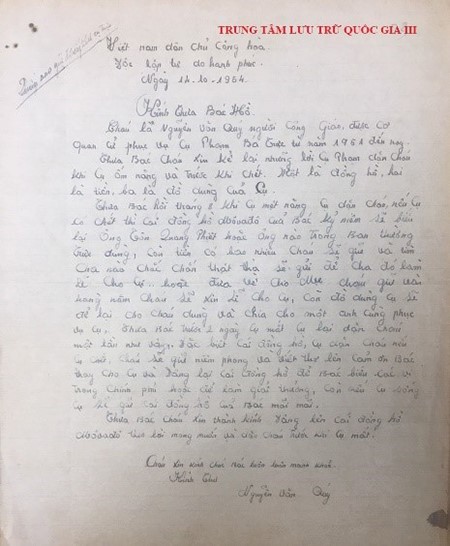 TRUNG TÂM LƯU TRỮ QUỐC GIA III
Việt nam dân chủ Cộng hòa
Độc lập tự do hạnh phúc
Ngày 14-10-1964.
Kính Thưa Bác Hồ.
Cháu là Nguyễn Văn Quý người Công Giáo, được Cơ
quan cử phục vụ Cụ Phạm Bá Trực từ năm 1951 đến nay.
Thưa Bác Cháu xin kể lại những lời Cụ Phạm dặn Cháu
khi Cụ ốm nặng và trước khi chết. Một là đồng hồ, hai
là tiền, ba là đồ dùng của Cụ.
Thưa Bác hồi tháng 8 khi Cụ mệt nặng Cụ dặn Cháu, nếu Cụ
có chết thì Cái đồng hồ Môvađô của Bác kỷ niệm sẽ biếu
lại Ông Tôn Quang Phiệt hoặc ông nào Trong Ban thường
trực dùng, Còn tiền có bao nhiêu Cháu sẽ gửi và tìm
Cha nào Chắc Chắn thật thà sẽ gửi để Cha đó làm
lễ Cho Cụ. hoặc đưa về Cho
hàng năm Cháu sẽ xin lễ Cho Cụ, Còn đồ dùng Cụ sẽ
để lại Cho Cháu dùng và Chia Cho một anh Cùng phục
vụ Cụ. Thưa Bác trước 2 ngày Cụ mất Cụ lại dặn Cháu
một lần như vậy. Đặc biệt Cái đồng hồ, Cụ dặn Cháu nếu
Cụ mất, Cháu sẽ gửi niêm phong và viết thư lên Cảm ơn Bác
thay Cho Cụ và dâng lại Cái đồng hồ để Bác biếu Các vị
trong Chính phủ hoặc để làm giải thưởng, Còn nếu Cụ sống
Cụ sẽ giữ Cái đồng hồ của Bác mãi mãi.
Thưa Bác Cháu xin thành kính dâng lên Cái đồng hồ
Môvađô theo lời mong muốn và dặn Cháu trước khi Cụ mất.
Cháu xin kính chúc Bác luôn luôn mạnh khỏe.
Kính thư
Nguyễn Văn Quý